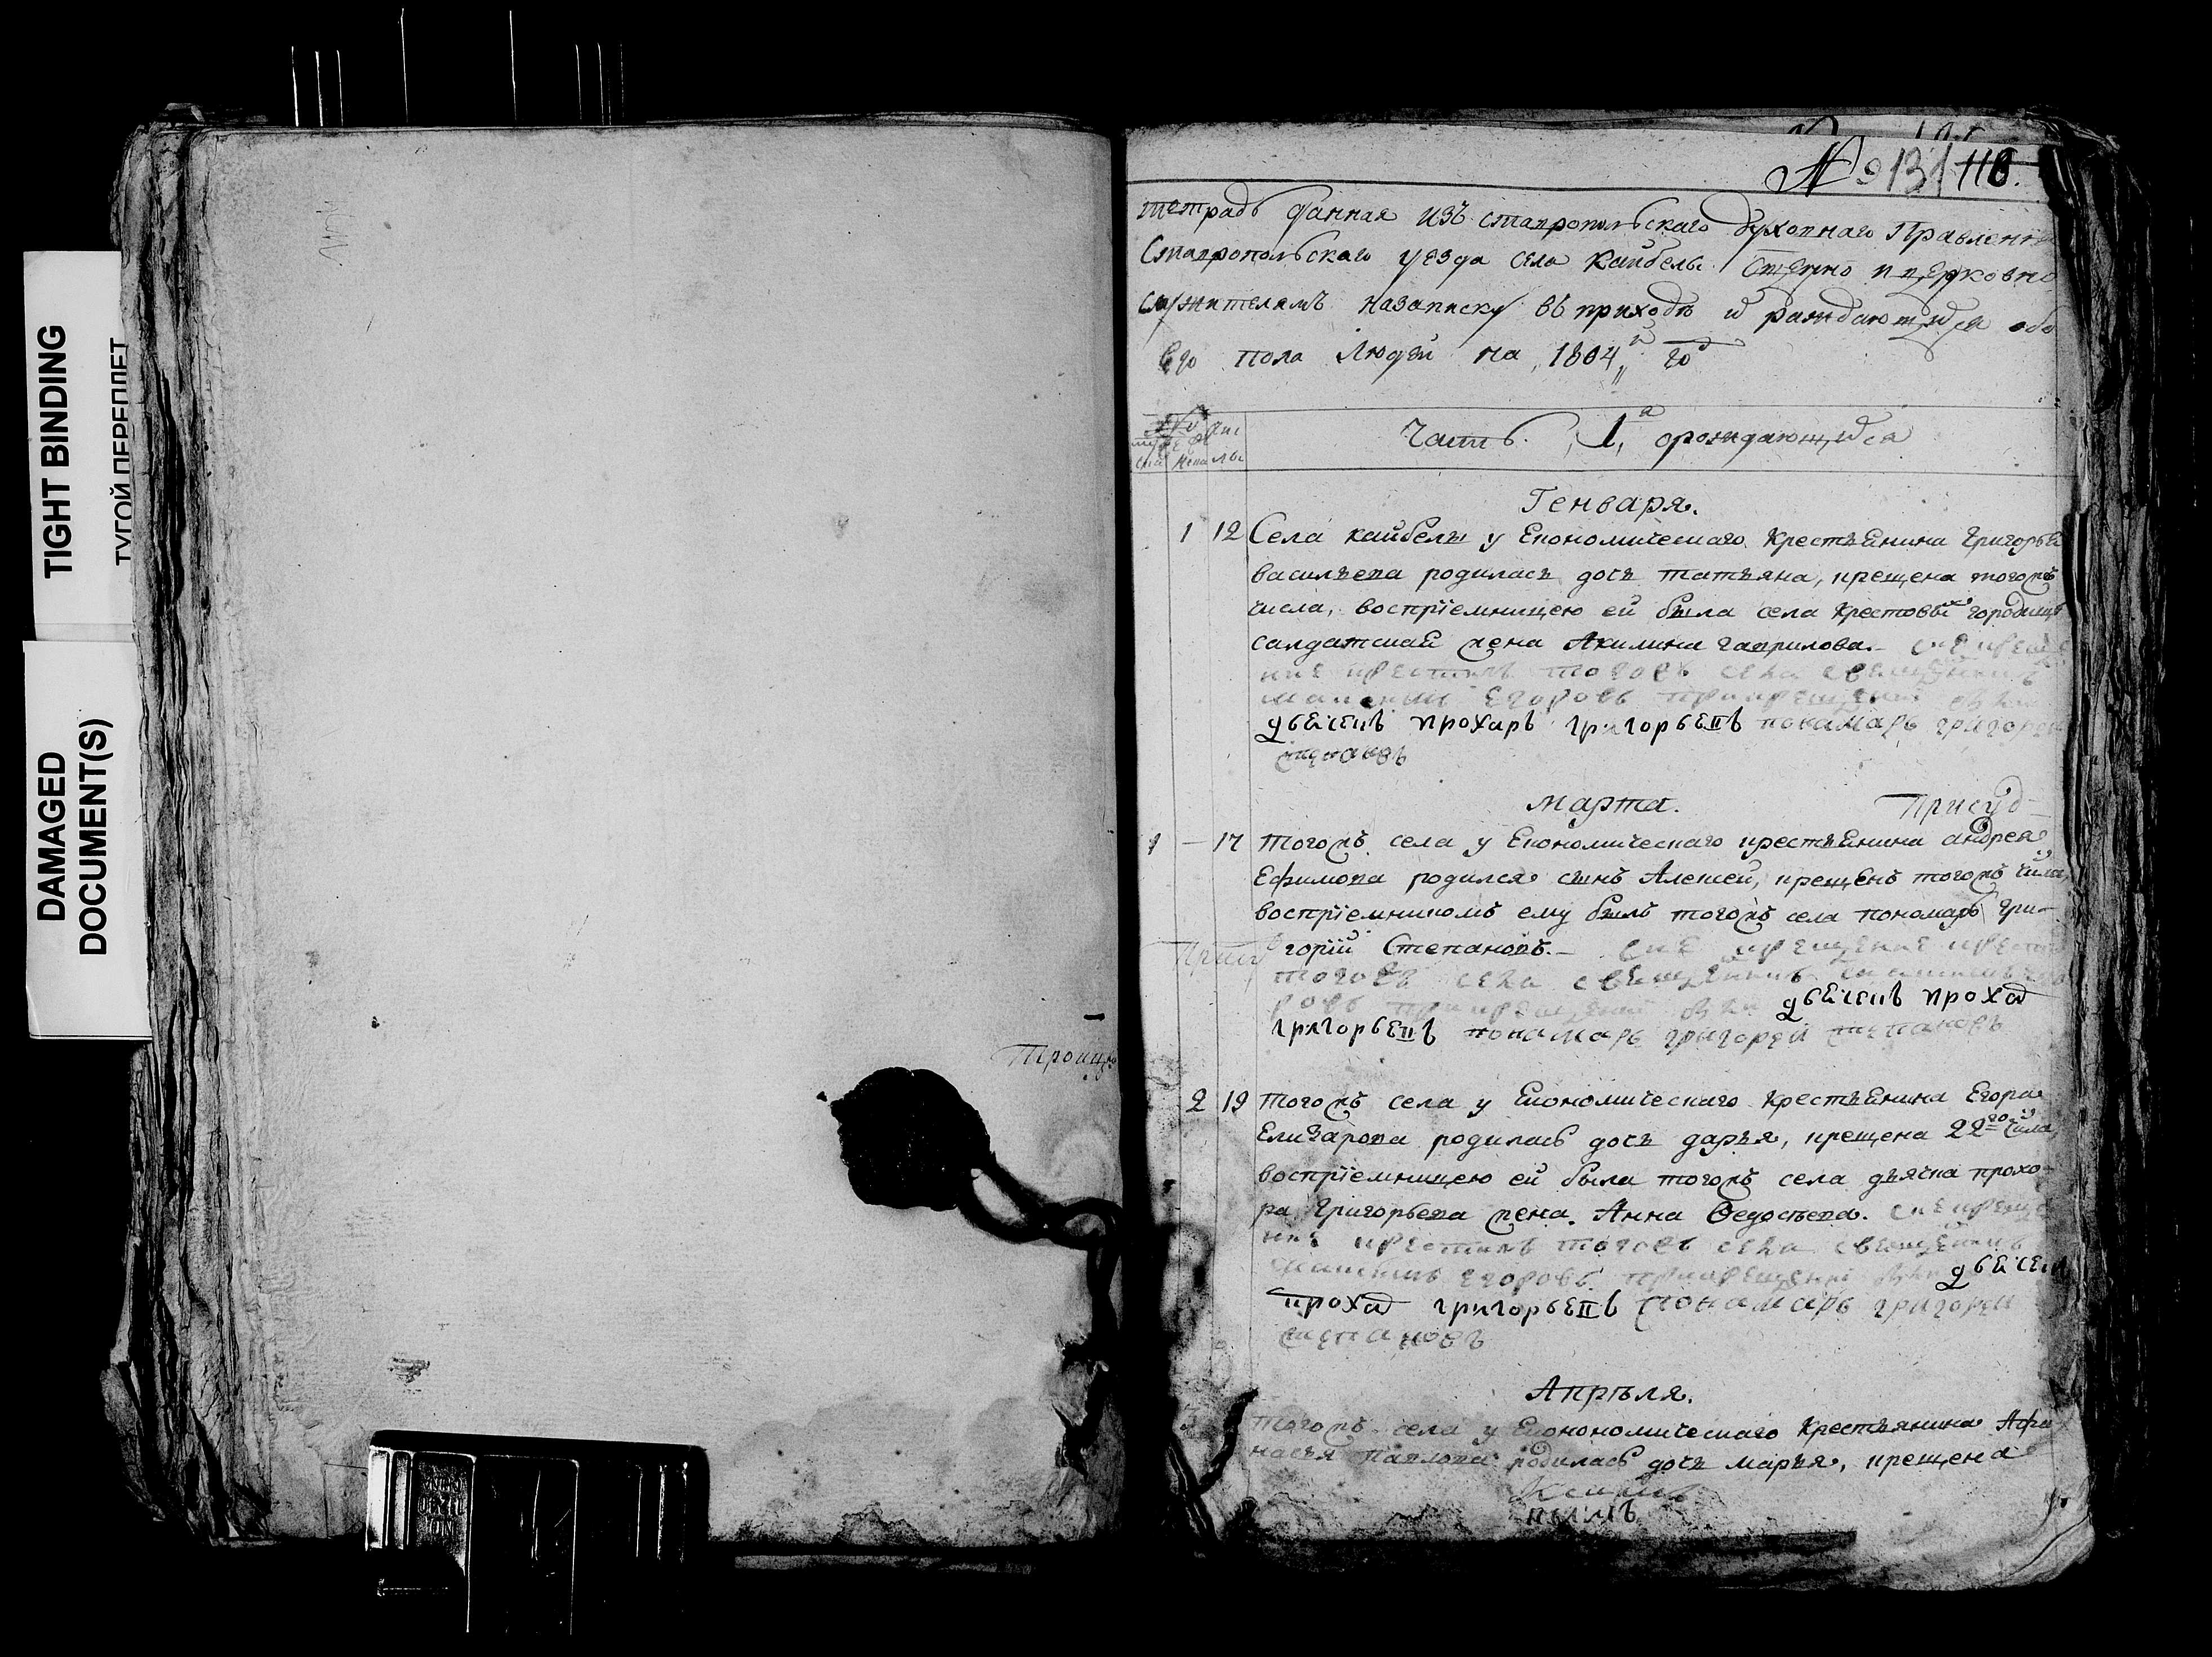 TIGHT BINDING
ТУГОЙ ПЕРЕПЛЕТ
DAMAGED
DOCUMENT(S)
Троицко
№ 131 118.
тетрадь данная изъ ставропольскаго духовнаго Правлени
Ставропольскаго уезда села Кайбелы Сщенно и церковно
служителямъ назаписку въ приходѣ ѡ раждающихся обо
его пола людей на 1804 й го
Часть 1,я ораждающихся
Генваря.
1 12 Села кайбелы у Економическаго Крестьянина Григорья
васильева родилась дочь татьяна, крещена тогожъ
числа, воспріемницею ей была села Крестовыхъ городищъ
салдатская жена Акилина гаврилова. сие креще
ние крестилъ тогожъ села священникъ
егоровъ прикрещении
дьячекъ прохаръ григорьевъ понамарь григорей
степановъ
Марта.
1 — 17 тогожъ села у Економическаго крестьянина андрея
Ефимова родился сынъ Алексей, крещенъ тогожъ числа,
воспріемникомъ ему былъ тогожъ села пономарь Гри-
горій Степановъ. сие крещение крести
тогожъ села священникъ
ровъ прикрещении дьячекъ прохар
григорьевъ понамарь григорей степановъ
2 19 тогожъ села у Економическаго Крестьянина Егора
Елизарова родилась дочь дарья, крещена 22го числа,
воспріемницею ей была тогожъ села дьячка прохо-
ра Григорьева жена Анна Ѳедосѣева. сие креще
ние крестилъ тогожъ села священникъ
егоровъ прикрещении дьячекъ
прохар григорьевъ понамарь григорей
степановъ
Апрѣля.
тогожъ села у Економическаго Крестьянина Афа
насья павлова родилась дочь марья, крещена